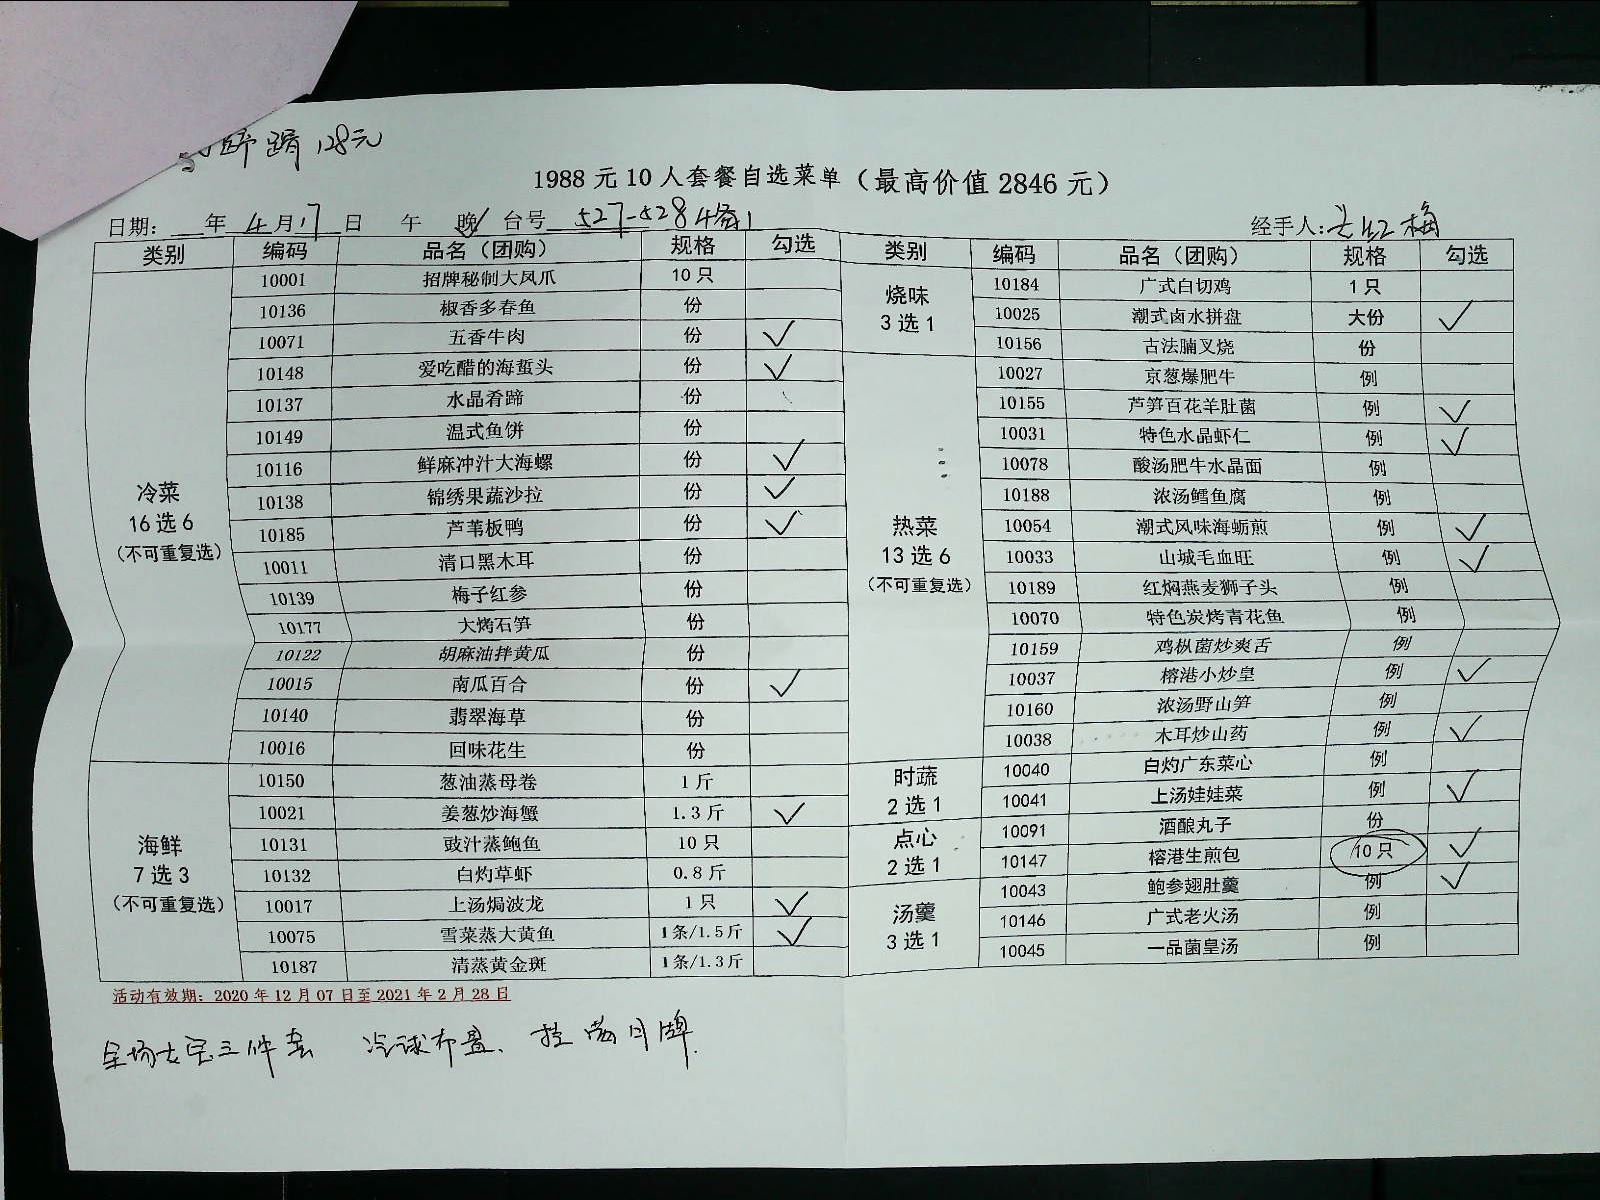 蹄 128元
1988 元 10 人套餐自选菜单（最高价值 2846 元）
日期: 年 4 月 17 日 午 晚√ 台号 527-528 经手人: 红梅
类别 编码 品名（团购） 规格 勾选 类别 编码 品名（团购） 规格 勾选
冷菜
16 选 6
(不可重复选)
10001 招牌秘制大凤爪 10 只
10136 椒香多春鱼 份
10071 五香牛肉 份 √
10148 爱吃醋的海蜇头 份 √
10137 水晶肴蹄 份
10149 温式鱼饼 份
10116 鲜麻冲汁大海螺 份 √
10138 锦绣果蔬沙拉 份 √
10185 芦苇板鸭 份 √
10011 清口黑木耳 份
10139 梅子红参 份
10177 大烤石笋 份
10122 胡麻油拌黄瓜 份
10015 南瓜百合 份 √
10140 翡翠海草 份
10016 回味花生 份
海鲜
7 选 3
(不可重复选)
10150 葱油蒸母卷 1 斤
10021 姜葱炒海蟹 1.3 斤 √
10131 豉汁蒸鲍鱼 10 只
10132 白灼草虾 0.8 斤
10017 上汤焗波龙 1 只 √
10075 雪菜蒸大黄鱼 1条/1.5斤 √
10187 清蒸黄金斑 1条/1.3斤
烧味
3 选 1
10184 广式白切鸡 1 只
10025 潮式卤水拼盘 大份 √
10156 古法腩叉烧 份
热菜
13 选 6
(不可重复选)
10027 京葱爆肥牛 例
10155 芦笋百花羊肚菌 例 √
10031 特色水晶虾仁 例 √
10078 酸汤肥牛水晶面 例
10188 浓汤鳕鱼腐 例
10054 潮式风味海蛎煎 例 √
10033 山城毛血旺 例 √
10189 红焖燕麦狮子头 例
10070 特色炭烤青花鱼 例
10159 鸡枞菌炒爽舌 例
10037 榕港小炒皇 例 √
10160 浓汤野山笋 例
10038 木耳炒山药 例 √
时蔬
2 选 1
10040 白灼广东菜心 例
10041 上汤娃娃菜 例 √
点心
2 选 1
10091 酒酿丸子 份
10147 榕港生煎包 10 只 √
汤羹
3 选 1
10043 鲍参翅肚羹 例 √
10146 广式老火汤 例
10045 一品菌皇汤 例
活动有效期: 2020 年 12 月 07 日至 2021 年 2 月 28 日
全场 三件套 气球布置、